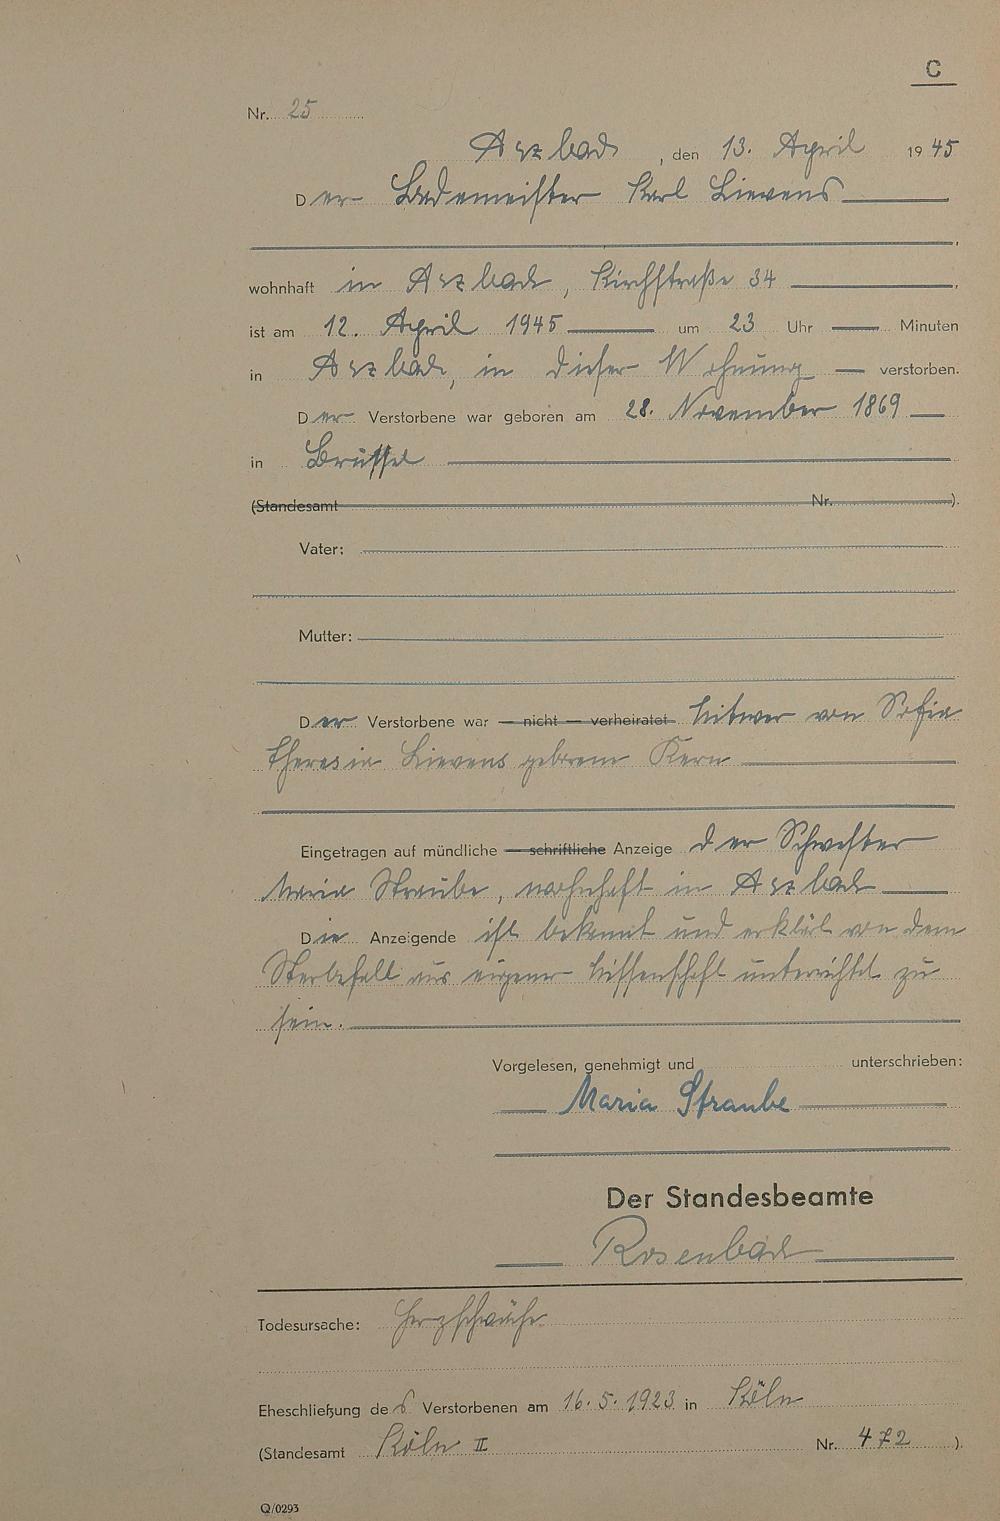 C
Nr. 25
Arzbach, den 13. April 1945
Der Lademeister Karl Lievens
wohnhaft in Arzbach, Kirchstraße 34
ist am 12. April 1945 um 23 Uhr Minuten
in Arzbach, in dieser Wohnung verstorben.
Der Verstorbene war geboren am 28. November 1869
in Brüssel
(Standesamt Nr. ).
Vater:
Mutter:
Der Verstorbene war nicht verheiratet Witwer von Sofia
Theresia Lievens geborene Kern
Eingetragen auf mündliche schriftliche Anzeige der Schwester
Maria Straube, wohnhaft in Arzbach
Die Anzeigende ist bekannt und erklärt von dem
Sterbefall aus eigener Wissenschaft unterrichtet zu
sein.
Vorgelesen, genehmigt und unterschrieben:
Maria Straube
Der Standesbeamte
Rosenbach
Todesursache: Herzschwäche
Eheschließung des Verstorbenen am 16.5.1923 in Köln
(Standesamt Köln II Nr. 472 ).
Q/0293